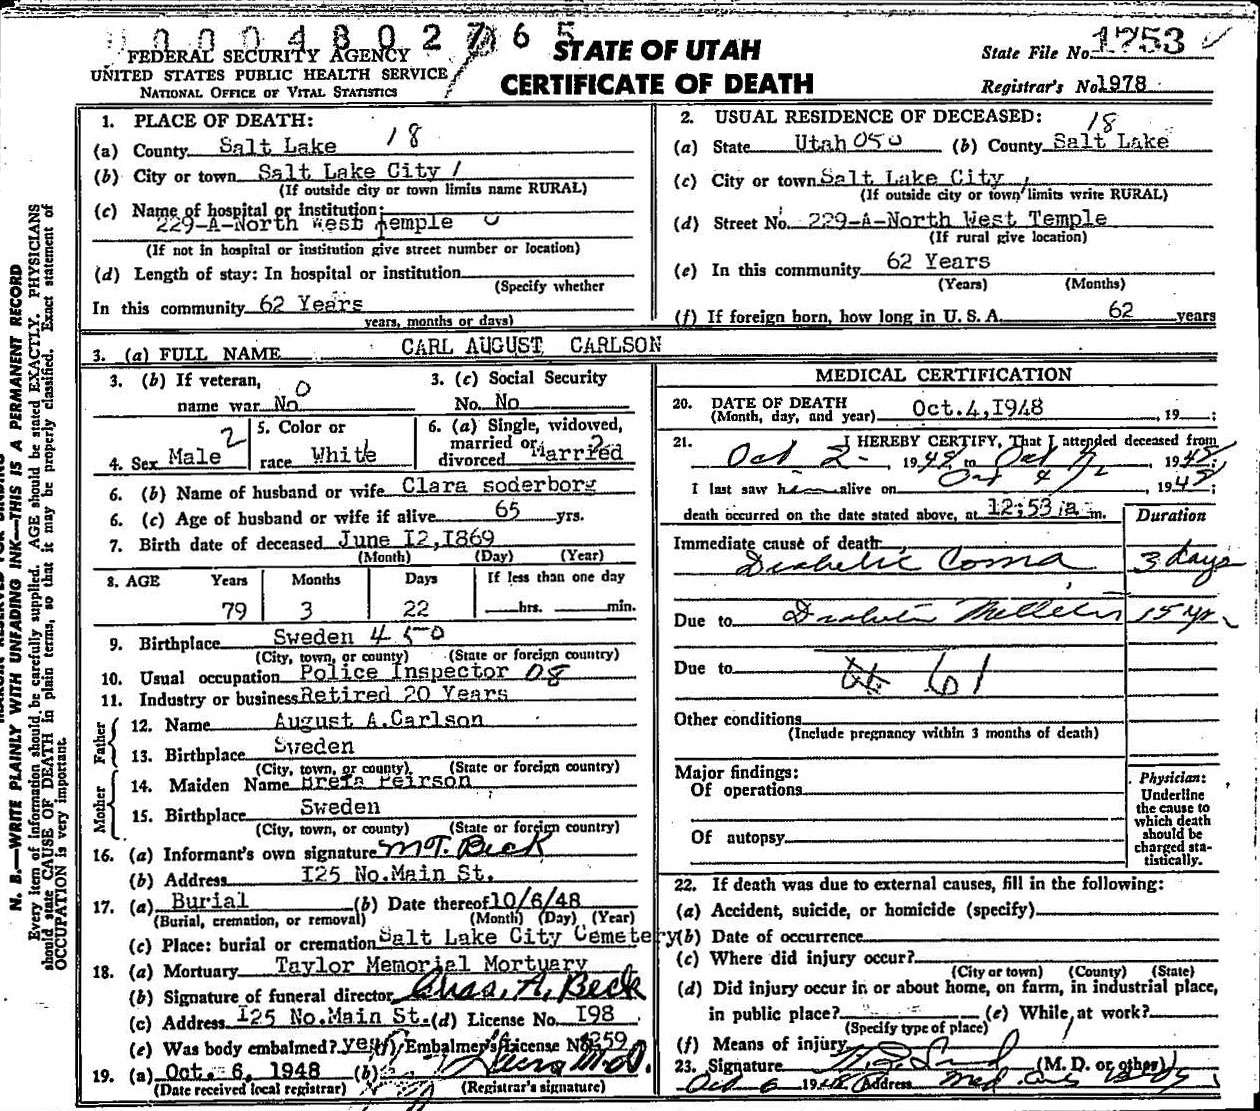 0004802765
FEDERAL SECURITY AGENCY
UNITED STATES PUBLIC HEALTH SERVICE
NATIONAL OFFICE OF VITAL STATISTICS
STATE OF UTAH
CERTIFICATE OF DEATH
State File No. 1753
Registrar's No. 1978
N. B.—WRITE PLAINLY WITH UNFADING INK—THIS IS A PERMANENT RECORD
Every item of information should be carefully supplied. AGE should be stated EXACTLY. PHYSICIANS
should state CAUSE OF DEATH in plain terms, so that it may be properly classified. Exact statement of
OCCUPATION is very important.
1. PLACE OF DEATH:
(a) County Salt Lake 18
(b) City or town Salt Lake City 1
(If outside city or town limits name RURAL)
(c) Name of hospital or institution:
229-A-North West Temple 0
(If not in hospital or institution give street number or location)
(d) Length of stay: In hospital or institution
(Specify whether
In this community 62 Years
years, months or days)
2. USUAL RESIDENCE OF DECEASED:
(a) State Utah 050 (b) County Salt Lake 18
(c) City or town Salt Lake City
(If outside city or town limits write RURAL)
(d) Street No. 229-A-North West Temple
(If rural give location)
(e) In this community 62 Years
(Years) (Months)
(f) If foreign born, how long in U. S. A. 62 years
3. (a) FULL NAME CARL AUGUST CARLSON
3. (b) If veteran, 0
name war No
3. (c) Social Security
No. No
4. Sex Male 2
5. Color or
race White
6. (a) Single, widowed,
married or
divorced Married 2
6. (b) Name of husband or wife Clara soderborg
6. (c) Age of husband or wife if alive 65 yrs.
7. Birth date of deceased June I2,I869
(Month) (Day) (Year)
8. AGE Years Months Days If less than one day
79 3 22 hrs. min.
9. Birthplace Sweden 450
(City, town, or county) (State or foreign country)
10. Usual occupation Police Inspector 08
11. Industry or business Retired 20 Years
Father
12. Name August A.Carlson
13. Birthplace Sweden
(City, town, or county) (State or foreign country)
Mother
14. Maiden Name Breta Peirson
15. Birthplace Sweden
(City, town, or county) (State or foreign country)
16. (a) Informant's own signature M.T. Beck
(b) Address I25 No.Main St.
17. (a) Burial (b) Date thereof 10/6/48
(Burial, cremation, or removal) (Month) (Day) (Year)
(c) Place: burial or cremation Salt Lake City Cemetery
18. (a) Mortuary Taylor Memorial Mortuary
(b) Signature of funeral director Chas. A. Beck
(c) Address I25 No.Main St. (d) License No. I98
(e) Was body embalmed? yes (f) Embalmer's License No. 259
19. (a) Oct. 6, 1948 (b) M.D.
(Date received local registrar) (Registrar's signature)
MEDICAL CERTIFICATION
20. DATE OF DEATH
(Month, day, and year) Oct.4,I948 , 19 ;
21. I HEREBY CERTIFY, That I attended deceased from
Oct 2 - 1948 to Oct 4 1948
I last saw him alive on Oct 4 , 1948;
death occurred on the date stated above, at 12:53 a m.
Duration
Immediate cause of death
Diabetic Coma 3 days
Due to Diabetes Mellitus 15 yr.
Due to 61
Other conditions
(Include pregnancy within 3 months of death)
Major findings:
Of operations
Of autopsy
Physician:
Underline
the cause to
which death
should be
charged sta-
tistically.
22. If death was due to external causes, fill in the following:
(a) Accident, suicide, or homicide (specify)
(b) Date of occurrence
(c) Where did injury occur?
(City or town) (County) (State)
(d) Did injury occur in or about home, on farm, in industrial place,
in public place? (e) While at work?
(Specify type of place)
(f) Means of injury
23. Signature (M. D. or other)
Oct 6 1948 Address Med. Arts Bldg